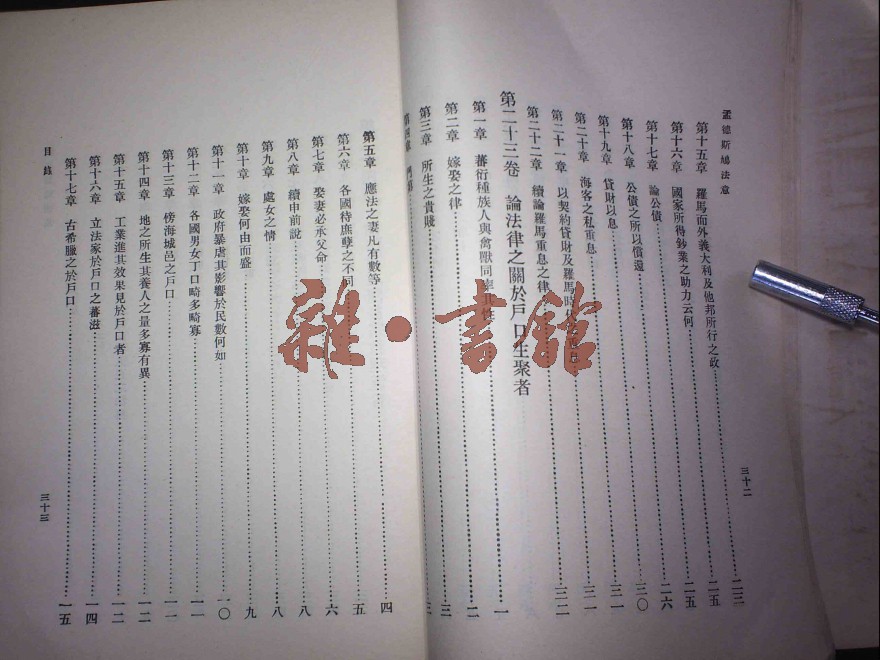 孟德斯鳩法意
第十五章 羅馬而外義大利及他邦所行之政 二三
第十六章 國家所得鈔業之助力云何 二五
第十七章 論公債 二六
第十八章 公債之所以償還 三〇
第十九章 貸財以息 三一
第二十章 海客之私重息 三一
第二十一章 以契約貸財及羅馬時
第二十二章 續論羅馬重息之律 三二
第二十三卷 論法律之關於戶口生聚者
第一章 蕃衍種族人與禽獸同 一
第二章 嫁娶之律 二
第三章 所生之貴賤 三
第四章 三
三十二
第五章 應法之妻凡有數等 四
第六章 各國待庶孽之不同 五
第七章 娶妻必承父命 六
第八章 續申前說 八
第九章 處女之情 八
第十章 嫁娶何由而盛 九
第十一章 政府暴虐其影響於民數何如 一〇
第十二章 各國男女丁口畸多畸寡 一一
第十三章 傍海城邑之戶口 一一
第十四章 地之所生其養人之量多寡有異 一二
第十五章 工業進其效果見於戶口者 一二
第十六章 立法家於戶口之蕃滋 一四
第十七章 古希臘之於戶口 一五
目錄
三十三
雜·書館